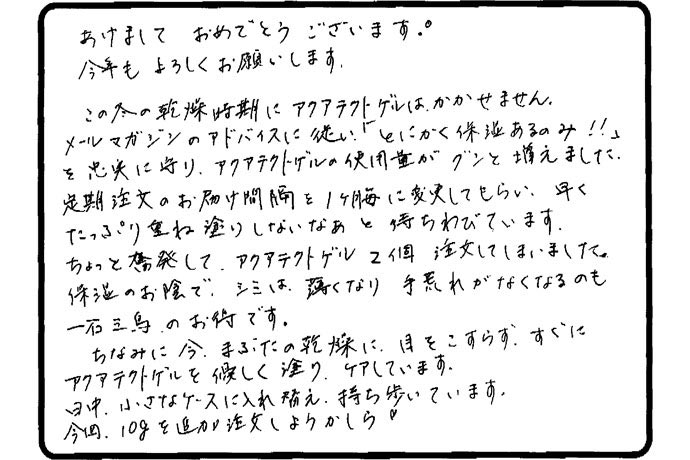 あけまして おめでとう ございます。
今年も よろしくお願いします。
この冬の乾燥時期に アクアテクトゲルは、かかせません。
メールマガジンのアドバイスに従い「とにかく保湿あるのみ!!」
を忠実に守り、アクアテクトゲルの使用量が グンと 増えました。
定期注文のお届け間隔を1ヶ月毎に変更してもらい、早く
たっぷり重ね塗りしないなぁ と 待ちわびています。
ちょっと奮発して、アクアテクトゲル 2個 注文してしまいました。
保湿のお陰で、シミは、薄くなり 手荒れがなくなるのも
一石三鳥 のお待です。
ちなみに 今、まぶたの乾燥に、目をこすらず、すぐに
アクアテクトゲルを優しく塗り、ケアしています。
日中、小さなケースに入れ替え、持ち歩いています。
今回、10gを追加注文しようかしら